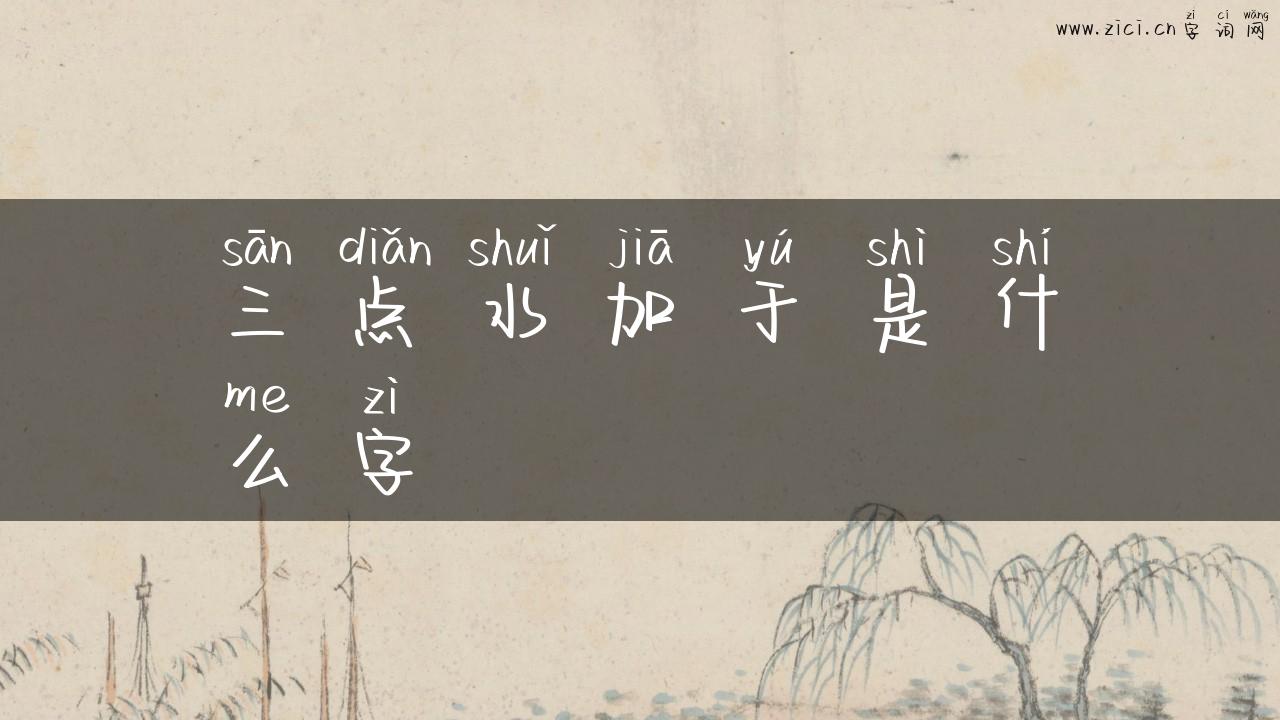 zì cí wǎng
www.zici.cn 字词网
sān diǎn shuǐ jiā yú shì shí
三点水加于是什
me zì
么字